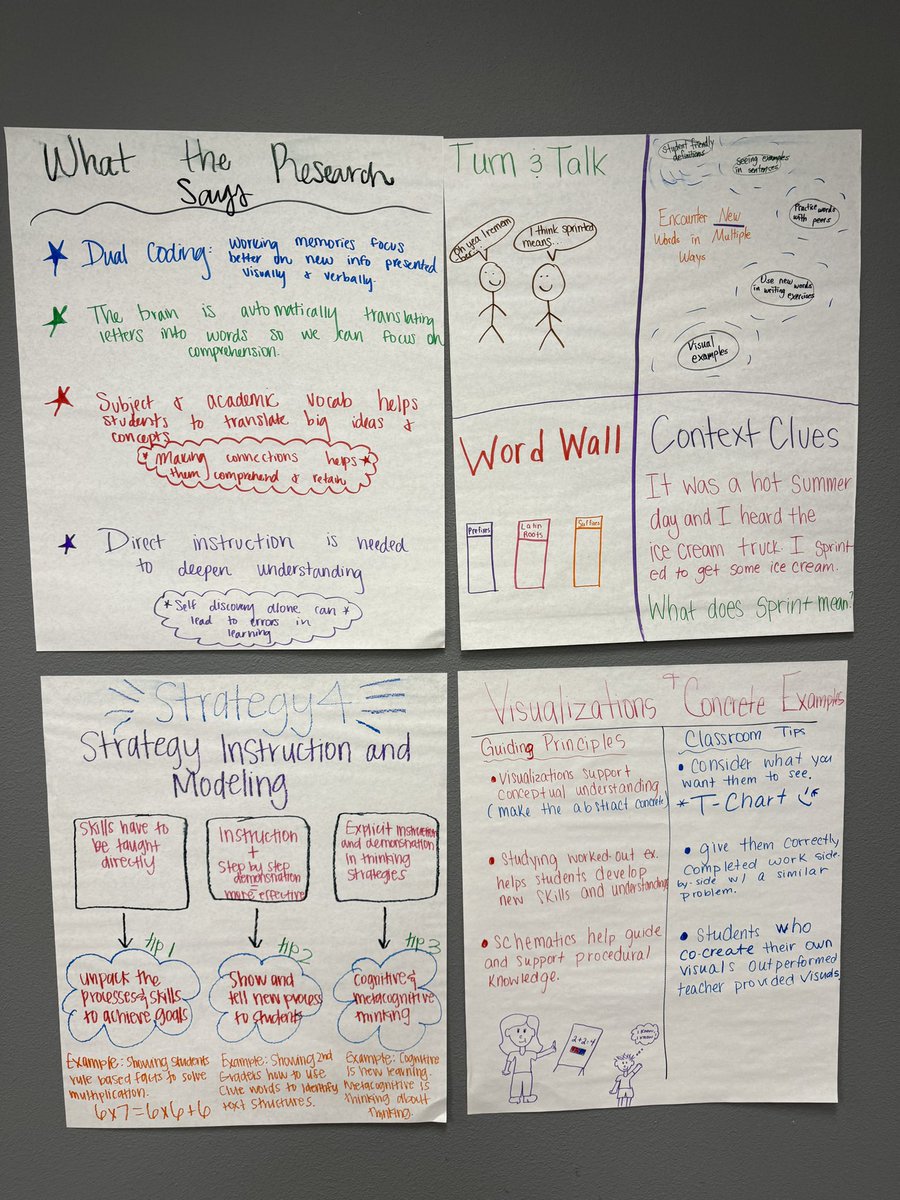 What the Research
Says
Dual Coding: Working memories focus
better on new info presented
visually & verbally.
The brain is automatically translating
letters into words so we can focus on
comprehension.
Subject & academic vocab helps
students to translate big ideas &
concepts
* Making connections helps *
them comprehend & retain
Direct instruction is needed
to deepen understanding
* Self discovery alone can *
lead to errors in
learning
Turn & Talk
Oh yea I remem
ber...
I think sprinted
means...
Student friendly
definitions
Seeing examples
in sentences
Encounter New
Words in Multiple
Ways
Practice words
with peers
Use new words
in writing exercises
Visual
examples
Word Wall
Prefixes
Latin
Roots
Suffixes
Context Clues
It was a hot summer
day and I heard the
ice cream truck. I sprint-
ed to get some ice cream.
What does sprint mean?
Strategy 4
Strategy Instruction and
Modeling
Skills have to
be taught
directly
Instruction
+
Step by step
demonstration
=
more effective
Explicit instruction
and demonstration
in thinking
strategies
tip 1
tip 2
tip 3
unpack the
processes & skills
to achieve goals
Show and
tell new process
to students
Cognitive &
metacognitive
thinking
Example: Showing students
rule based facts to solve
multiplication.
6x7=6x6+6
Example: Showing 2nd
Graders how to use
Clue words to identify
text structures.
Example: Cognitive
is new learning.
Metacognitive is
thinking about
thinking.
Visualizations & Concrete Examples
Guiding Principles
• Visualizations support
conceptual understanding
(make the abstract concrete)
• Studying worked-out ex.
helps students develop
new skills and understanding
• Schematics help guide
and support procedural
knowledge.
Classroom Tips
• Consider what you
want them to see.
* T-Chart
• give them correctly
completed work side-
by-side w/ a similar
problem.
• Students who
co-create their own
visuals outperformed
teacher provided visuals
2+2=4
I know,
I know!